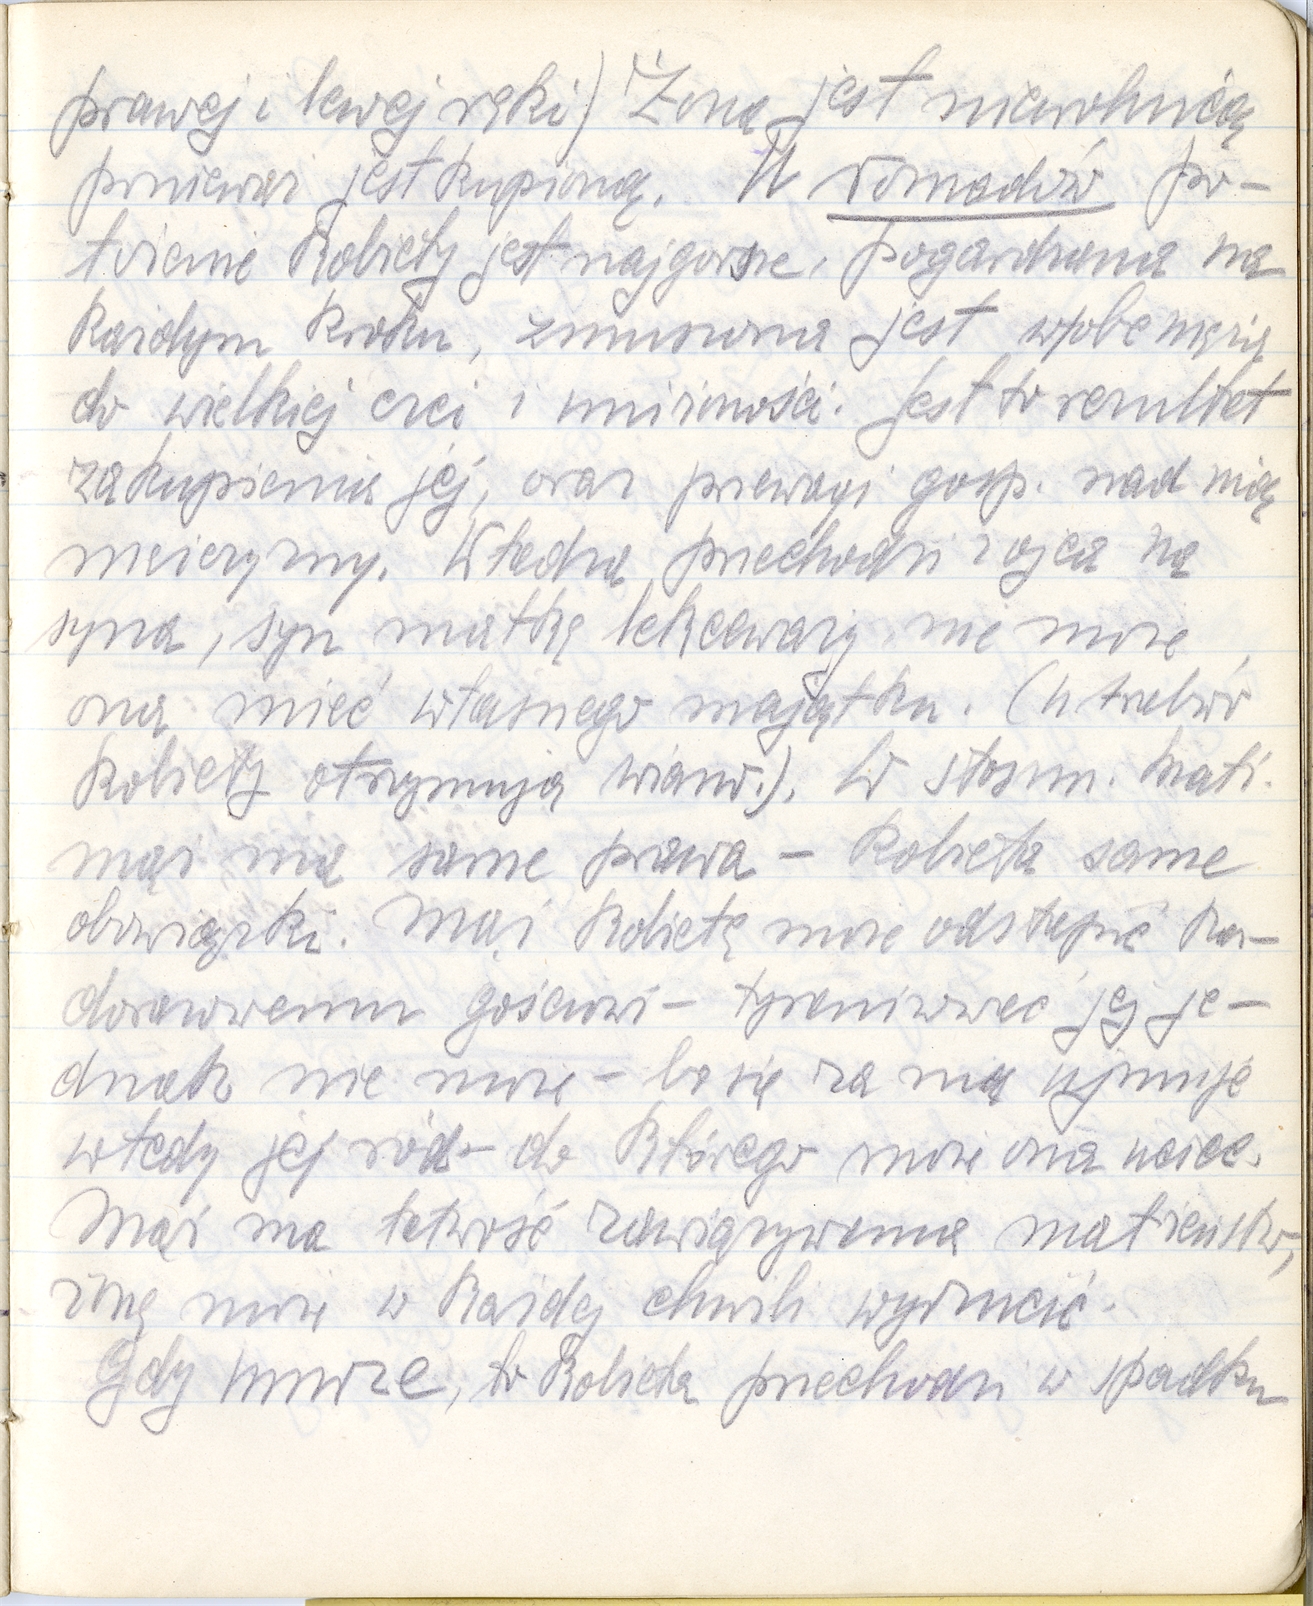 prawej i lewej ręki) Żona jest niewolnicą
ponieważ jest kupioną. U nomadów po-
łożenie kobiety jest najgorsze. Pogardzana na
każdym kroku, zmuszona jest wobec męża
do wielkiej czci i uniżoności. Jest to rezultat
zakupienia jej, oraz przewagi gosp. nad nią
mężczyzny. Władza przechodzi z ojca na
syna, syn matkę lekceważy nie może
ona mieć własnego majątku. (u
kobiety otrzymują wiano.). W stosun. małż.
mąż ma same prawa – kobieta same
obowiązki. Mąż kobietę może odstąpić ka-
żdorazowemu gościowi – tyranizować jej je-
dnak nie może – bo się za nią ujmuje
wtedy jej ród – do którego może ona uciec.
Mąż ma łatwość zawiązywania małżeństw,
żonę może w każdej chwili wyrzucić.
Gdy umrze, to kobieta przechodzi w spadku